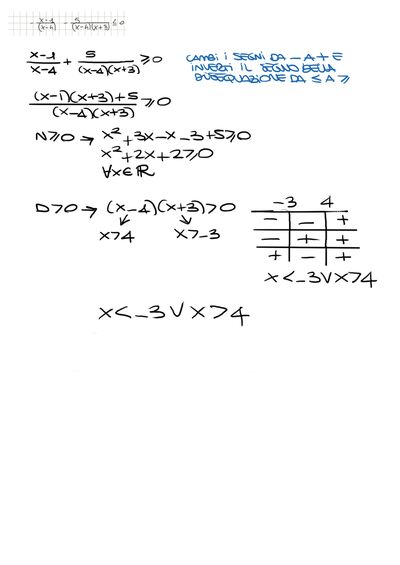 - x-1/(x-4) - 5/((x-4)(x+3)) ≤ 0
x-1/x-4 + 5/(x-4)(x+3) ≥ 0
CAMBI I SEGNI DA - A + E
INVERTI IL SEGNO DELLA
DISEQUAZIONE DA ≤ A ≥
(x-1)(x+3)+5/(x-4)(x+3) ≥ 0
N≥0 → x²+3x-x-3+5≥0
x²+2x+2≥0
∀x∈ℝ
D>0 → (x-4)(x+3)>0
x>4 x>-3
-3 4
- - +
- + +
+ - +
x<-3 ∨ x>4
x<-3 ∨ x>4